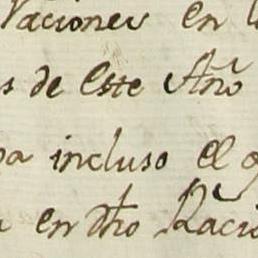 Raciones en l
s de Este Año
pa incluso el q
a en dho Racio